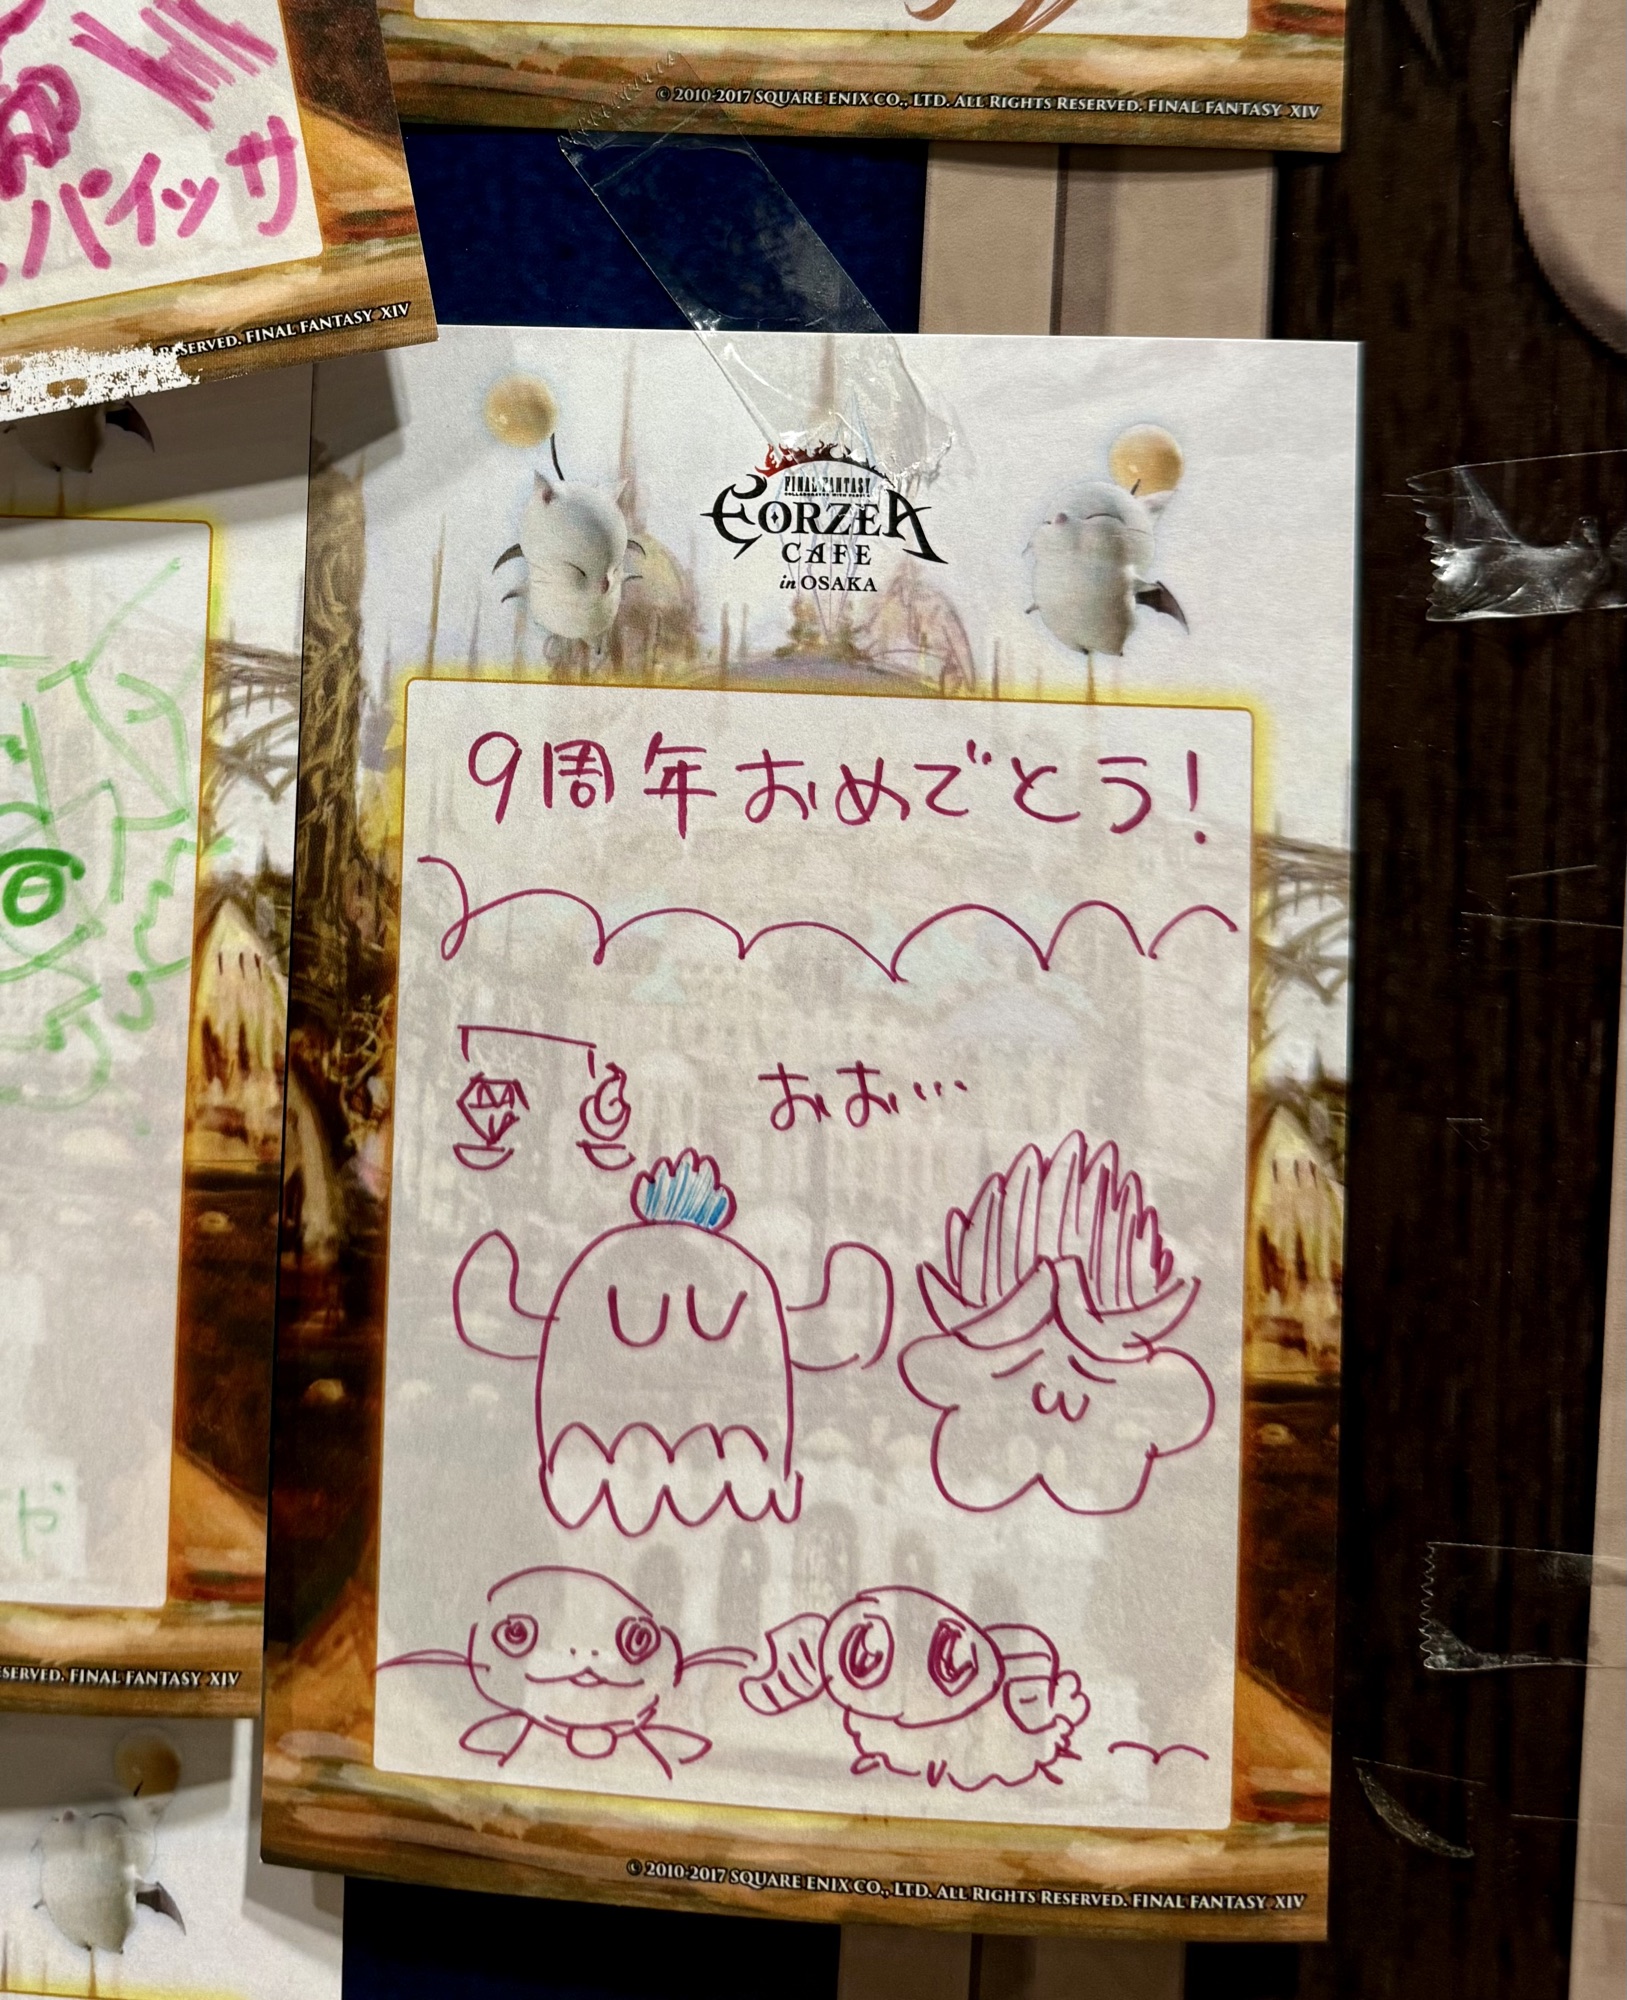 パイッサ
RESERVED. FINAL FANTASY XIV
© 2010-2017 SQUARE ENIX CO., LTD. ALL RIGHTS RESERVED. FINAL FANTASY XIV
FINAL FANTASY
EORZEA
CAFE
in OSAKA
9周年おめでとう!
おお…
や
SERVED. FINAL FANTASY XIV
© 2010-2017 SQUARE ENIX CO., LTD. ALL RIGHTS RESERVED. FINAL FANTASY XIV